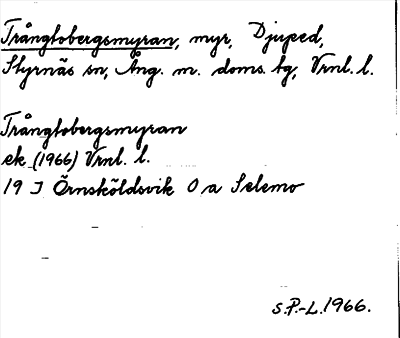 Trångtobergsmyran, myr, Djuped,
Styrnäs sn, Ång. m. doms. tg, Vrnl. l.
Trångtobergsmyran
ek (1966) Vrnl. l.
19 J Örnsköldsvik O a Selemo
S.P.-L. 1966.